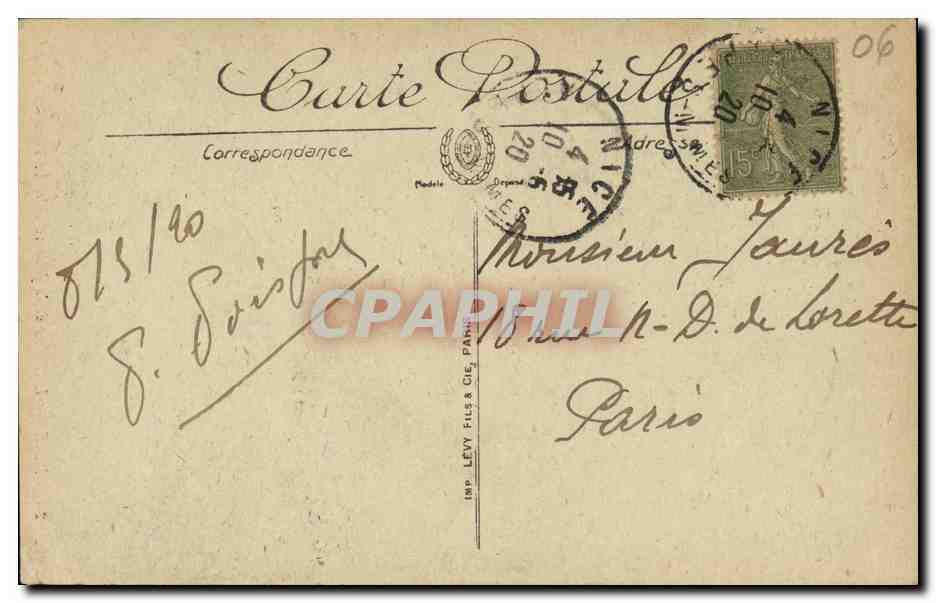 06
Carte Postale
Correspondance
Adresse
Modèle Déposé
NICE
10 4
20
MES
NICE
10 4
20
MES
15c
8/5/20
Monsieur Jaurès
18 rue N-D. de Lorette
Paris
IMP. LÉVY FILS & CIE, PARIS
CPAPHIL